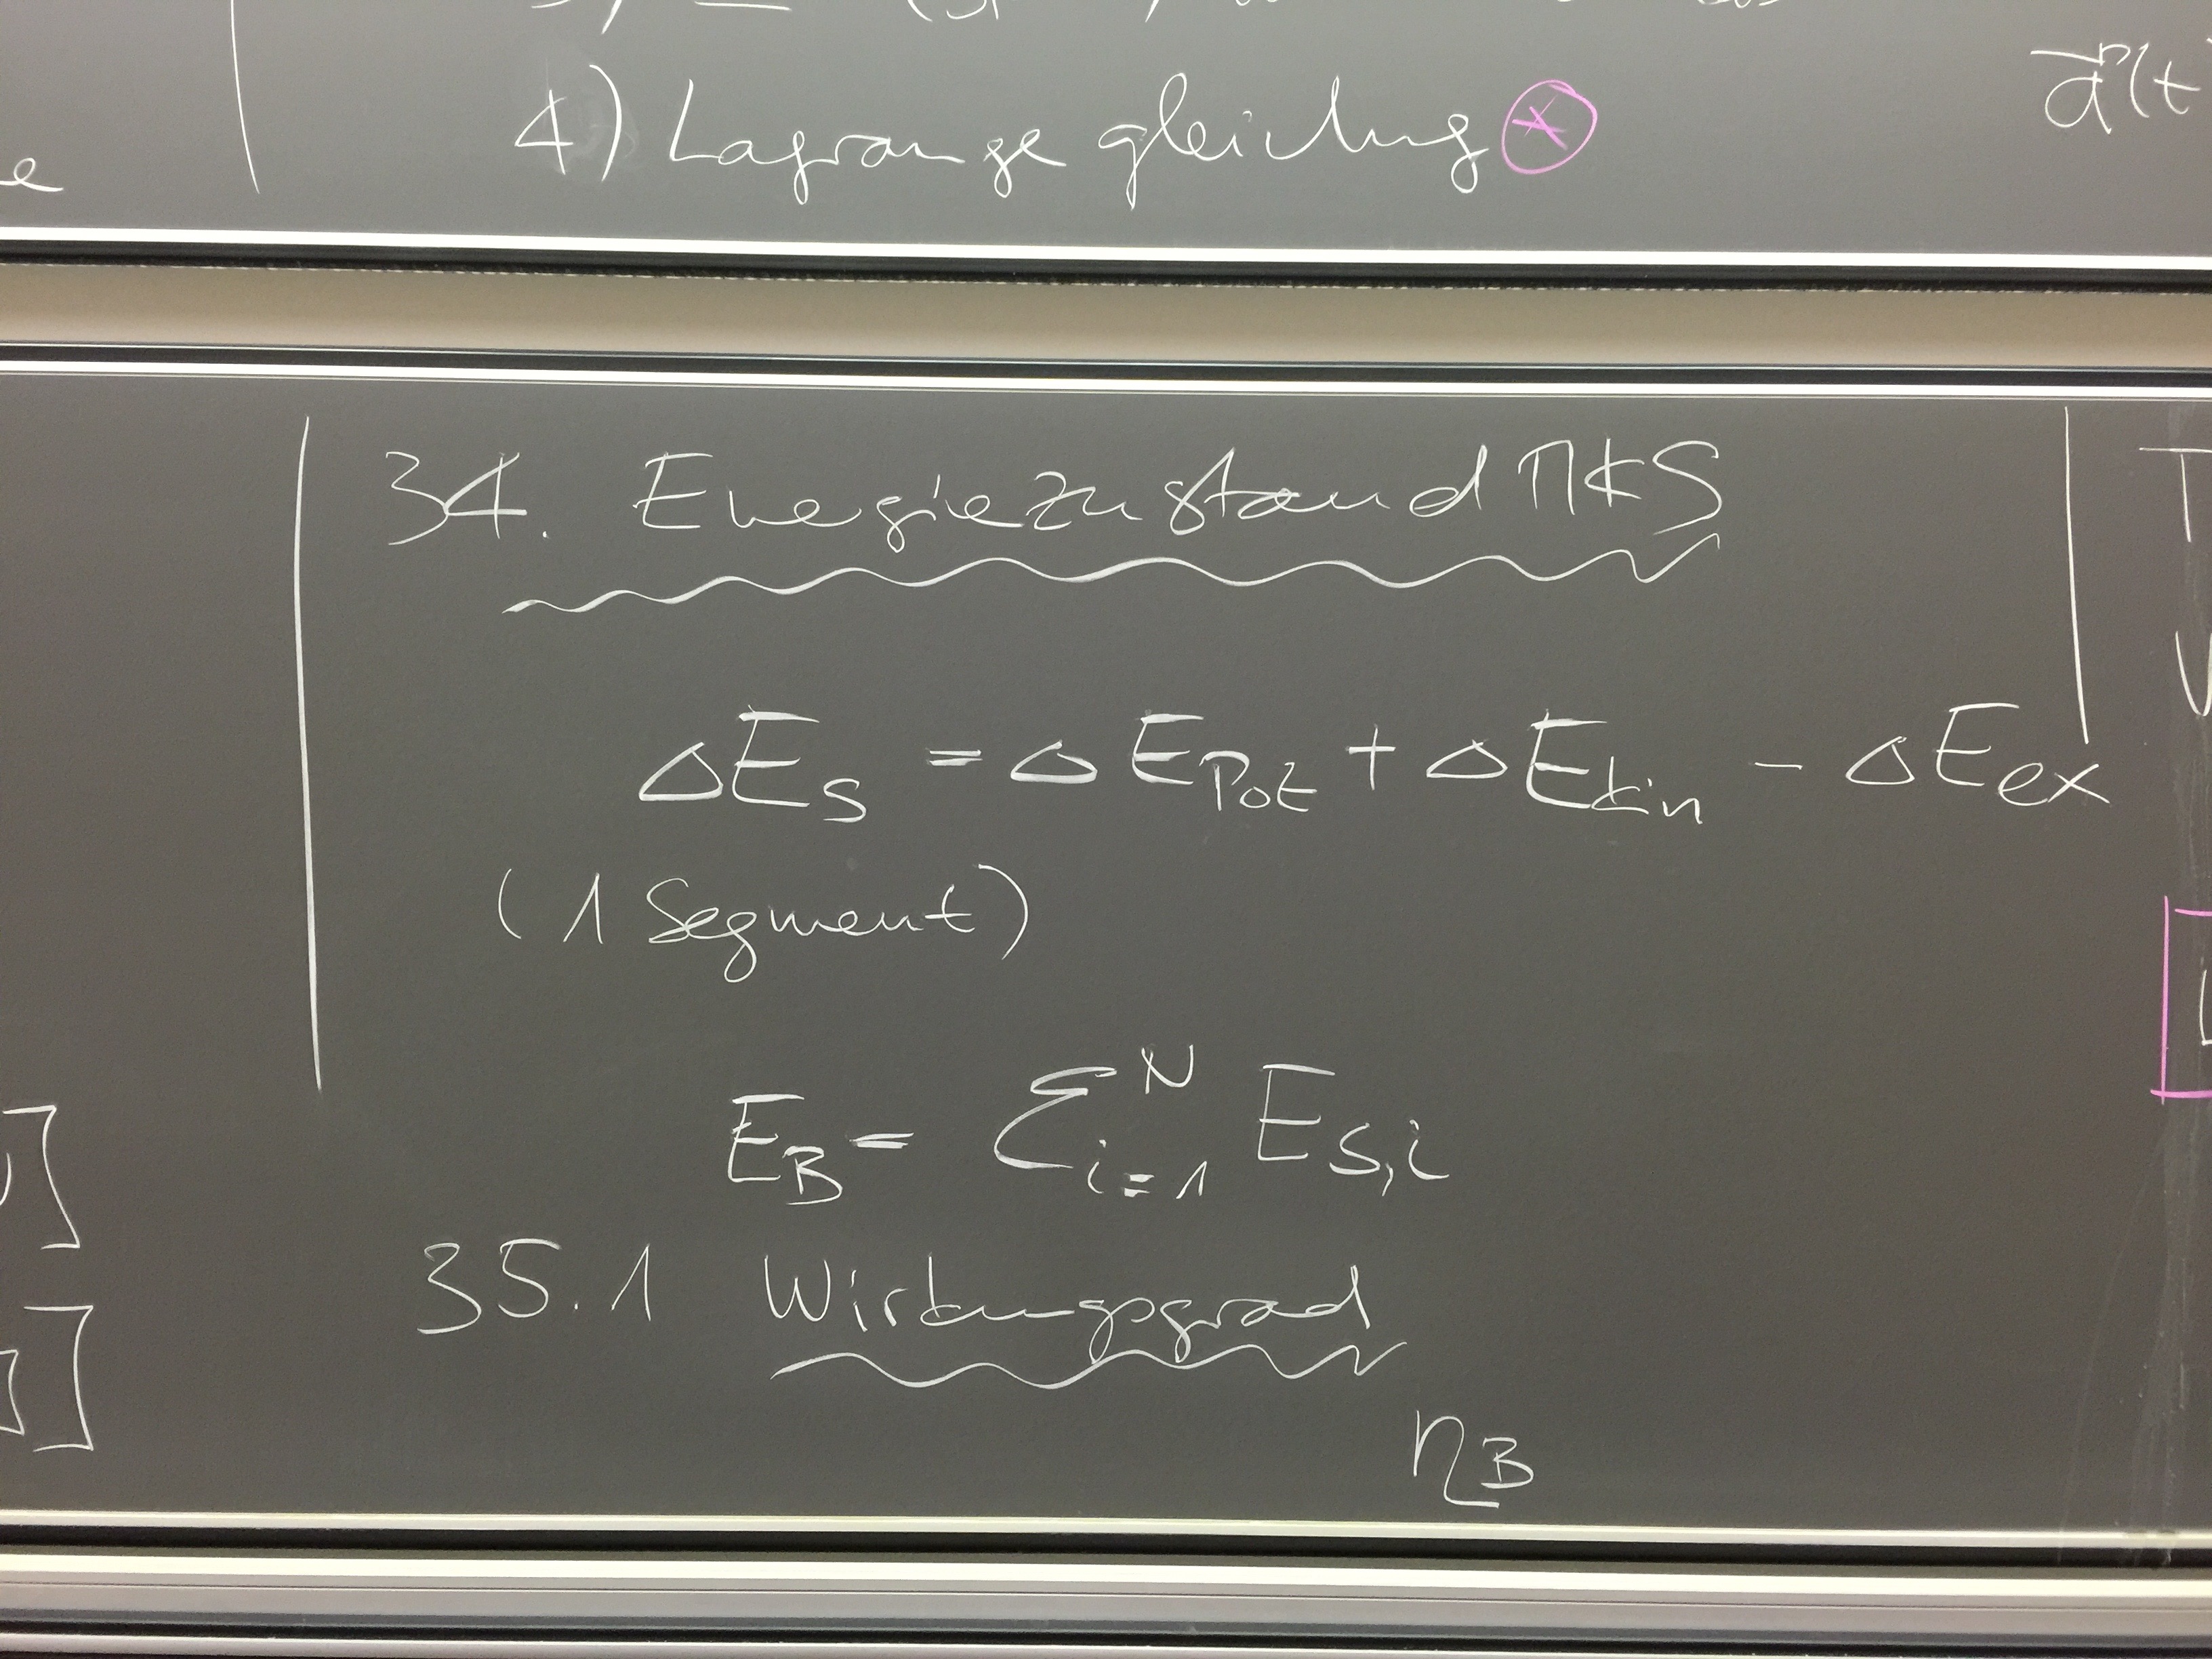 4) Lagrangegleichung *
a(t
34. Energiezustand MKS
ΔE_S = ΔE_Pot + ΔE_kin - ΔE_ex
(1 Segment)
E_B = Σ_{i=1}^N E_{S,i}
35.1 Wirkungsgrad
η_B